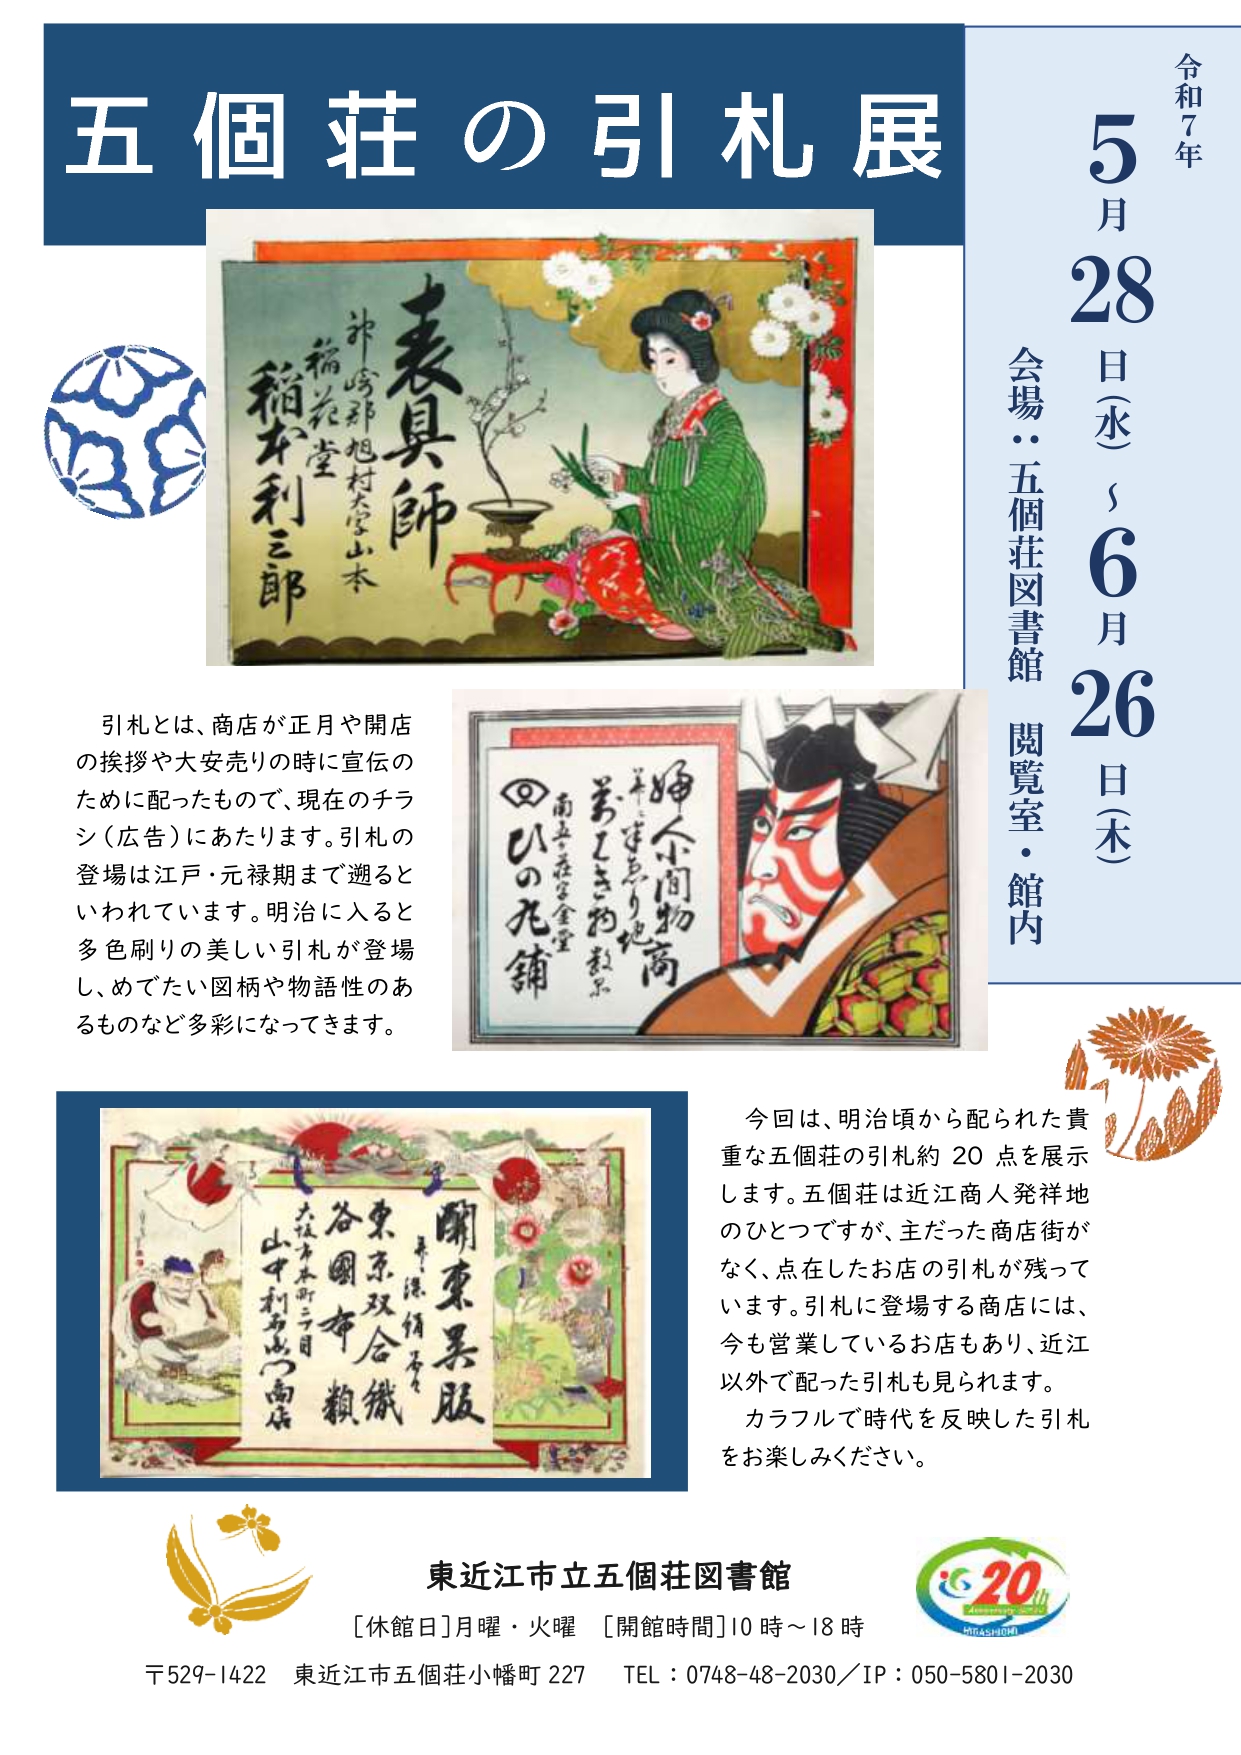 五個荘の引札展
令和7年
5月28日(水)～6月26日(木)
会場：五個荘図書館　閲覧室・館内
表具師
神崎郡旭村大字山本
稲花堂
稲本利三郎
引札とは、商店が正月や開店
の挨拶や大安売りの時に宣伝の
ために配ったもので、現在のチラ
シ（広告）にあたります。引札の
登場は江戸・元禄期まで遡ると
いわれています。明治に入ると
多色刷りの美しい引札が登場
し、めでたい図柄や物語性のあ
るものなど多彩になってきます。
婦人小間物商
南五ヶ荘字金堂
ひの九舗
関東呉服
東京双合織
各國布類
大阪市本町二丁目
山中利右衛門商店
今回は、明治頃から配られた貴
重な五個荘の引札約 20 点を展示
します。五個荘は近江商人発祥地
のひとつですが、主だった商店街が
なく、点在したお店の引札が残って
います。引札に登場する商店には、
今も営業しているお店もあり、近江
以外で配った引札も見られます。
カラフルで時代を反映した引札
をお楽しみください。
20th
Anniversary
HIGASHIOMI
東近江市立五個荘図書館
［休館日］月曜・火曜　［開館時間］10 時～18 時
〒529-1422　東近江市五個荘小幡町 227　TEL：0748-48-2030／IP：050-5801-2030